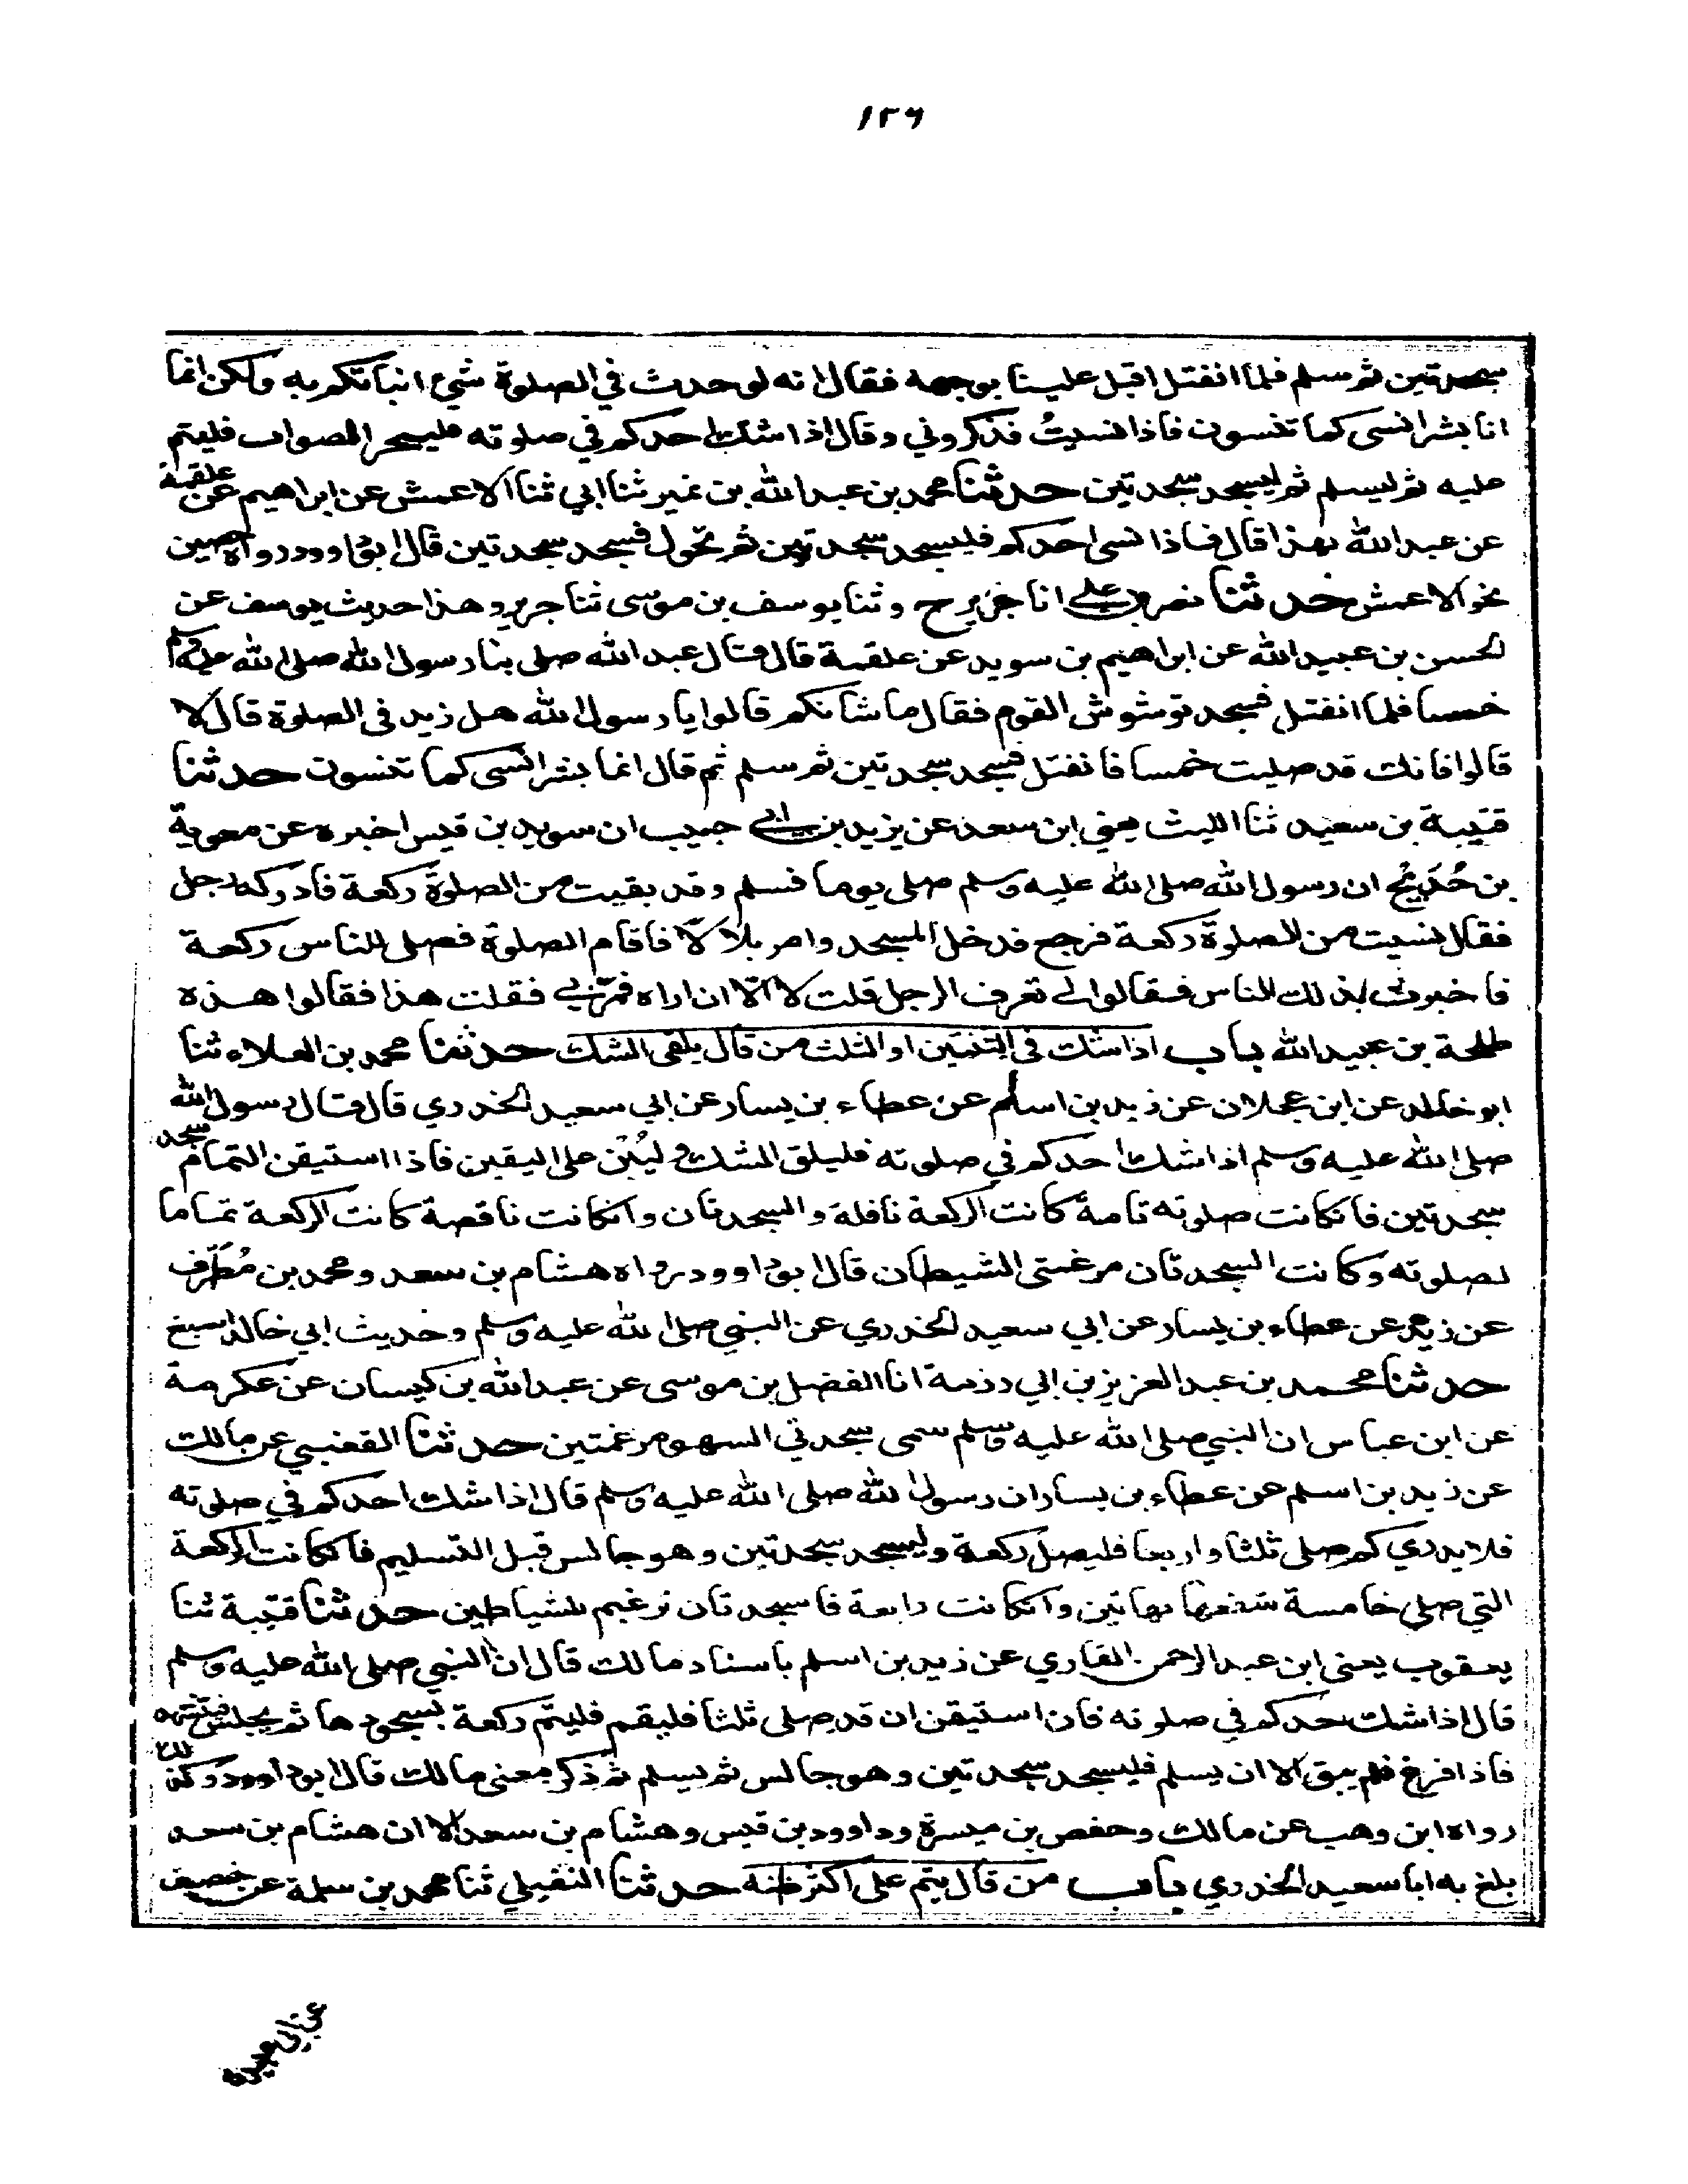 ١٢٦
سجدتين ثم سلم فلما انفتل اقبل علينا بوجهه فقال انه لو حدث في الصلوة شيء انبأتكم به ولكن انما
انا بشر انسى كما تنسون فاذا نسيتُ فذكروني وقال اذا شك احدكم في صلوته فليتحر الصواب فليتم
عليه ثم ليسلم ثم ليسجد سجدتين حدثنا محمد بن عبد الله بن نمير ثنا ابي ثنا الاعمش عن ابراهيم عن علقمة
عن عبد الله بهذا قال فاذا نسى احدكم فليسجد سجدتين ثم تحول فسجد سجدتين قال ابو داوود رواه حصين
نحو الاعمش حدثنا نصر بن علي انا جرير ح وثنا يوسف بن موسى ثنا جرير وهذا حديث يوسف عن
الحسن بن عبيد الله عن ابراهيم بن سويد عن علقمة قال قال عبد الله صلى بنا رسول الله صلى الله عليه وسلم
خمسا فلما انفتل فسجد توشوش القوم فقال ما شانكم قالوا يا رسول الله هل زيد في الصلوة قال لا
قالوا فانك قد صليت خمسا فانفتل فسجد سجدتين ثم سلم ثم قال انما بشر انسى كما تنسون حدثنا
قتيبة بن سعيد ثنا الليث يعني ابن سعد عن يزيد بن ابي حبيب ان سويد بن قيس اخبره عن معوية
بن حُدَيْج ان رسول الله صلى الله عليه وسلم صلى يوما فسلم وقد بقيت من الصلوة ركعة فادركه رجل
فقال نسيت من الصلوة ركعة فرجع فدخل المسجد وامر بلالا فاقام الصلوة فصلى للناس ركعة
فاخبرت بذلك الناس فقالوا لي تعرف الرجل قلت لا الا ان اراه فمرّ بي فقلت هذا فقالوا هذه
طلحة بن عبيد الله باب اذا شك في الثنتين او الثلث من قال يلقى الشك حدثنا محمد بن العلاء ثنا
ابو خالد عن ابن عجلان عن زيد بن اسلم عن عطاء بن يسار عن ابي سعيد الخدري قال قال رسول الله
صلى الله عليه وسلم اذا شك احدكم في صلوته فليلق الشك وليُبْن على اليقين فاذا استيقن التمام سجد
سجدتين فا نكانت صلوته تامة كانت الركعة نافلة والسجدتان وا نكانت ناقصة كانت الركعة تماما
لصلوته وكانت السجدتان مرغمتى الشيطان قال ابو داوود رواه هشام بن سعد ومحمد بن مُطَرِّف
عن زيد عن عطاء بن يسار عن ابي سعيد الخدري عن النبي صلى الله عليه وسلم وحديث ابي خالد اسبغ
حدثنا محمد بن عبد العزيز بن ابي رزمة انا الفضل بن موسى عن عبد الله بن كيسان عن عكرمة
عن ابن عباس ان النبي صلى الله عليه وسلم سمى سجدتي السهو مرغمتين حدثنا القعنبي عن مالك
عن زيد بن اسلم عن عطاء بن يسار ان رسول الله صلى الله عليه وسلم قال اذا شك احدكم في صلوته
فلا يدري كم صلى ثلثا واربعا فليصل ركعة وليسجد سجدتين وهو جالس قبل التسليم فا نكانت الركعة
التي صلى خامسة شفعها بهاتين وا نكانت رابعة فاسجدتان ترغيم للشياطين حدثنا قتيبة ثنا
يعقوب يعنى ابن عبد الرحمن القاري عن زيد بن اسلم باسناد مالك قال ان النبي صلى الله عليه وسلم
قال اذا شك احدكم في صلوته فان استيقن ان قد صلى ثلثا فليقم فليتم ركعة بسجودها ثم يجلس فيتشهد
فاذا فرغ فلم يبق الا ان يسلم فليسجد سجدتين وهو جالس ثم يسلم ثم ذكر معنى مالك قال ابو داوود وكذلك
رواه ابن وهب عن مالك وحفص بن ميسرة وداوود بن قيس وهشام بن سعد الا ان هشام بن سعد
بلغ به ابا سعيد الخدري باب من قال يتم على اكثر ظنه حدثنا النفيلي ثنا محمد بن سلمة عن خصيف
عن ابي عبيدة